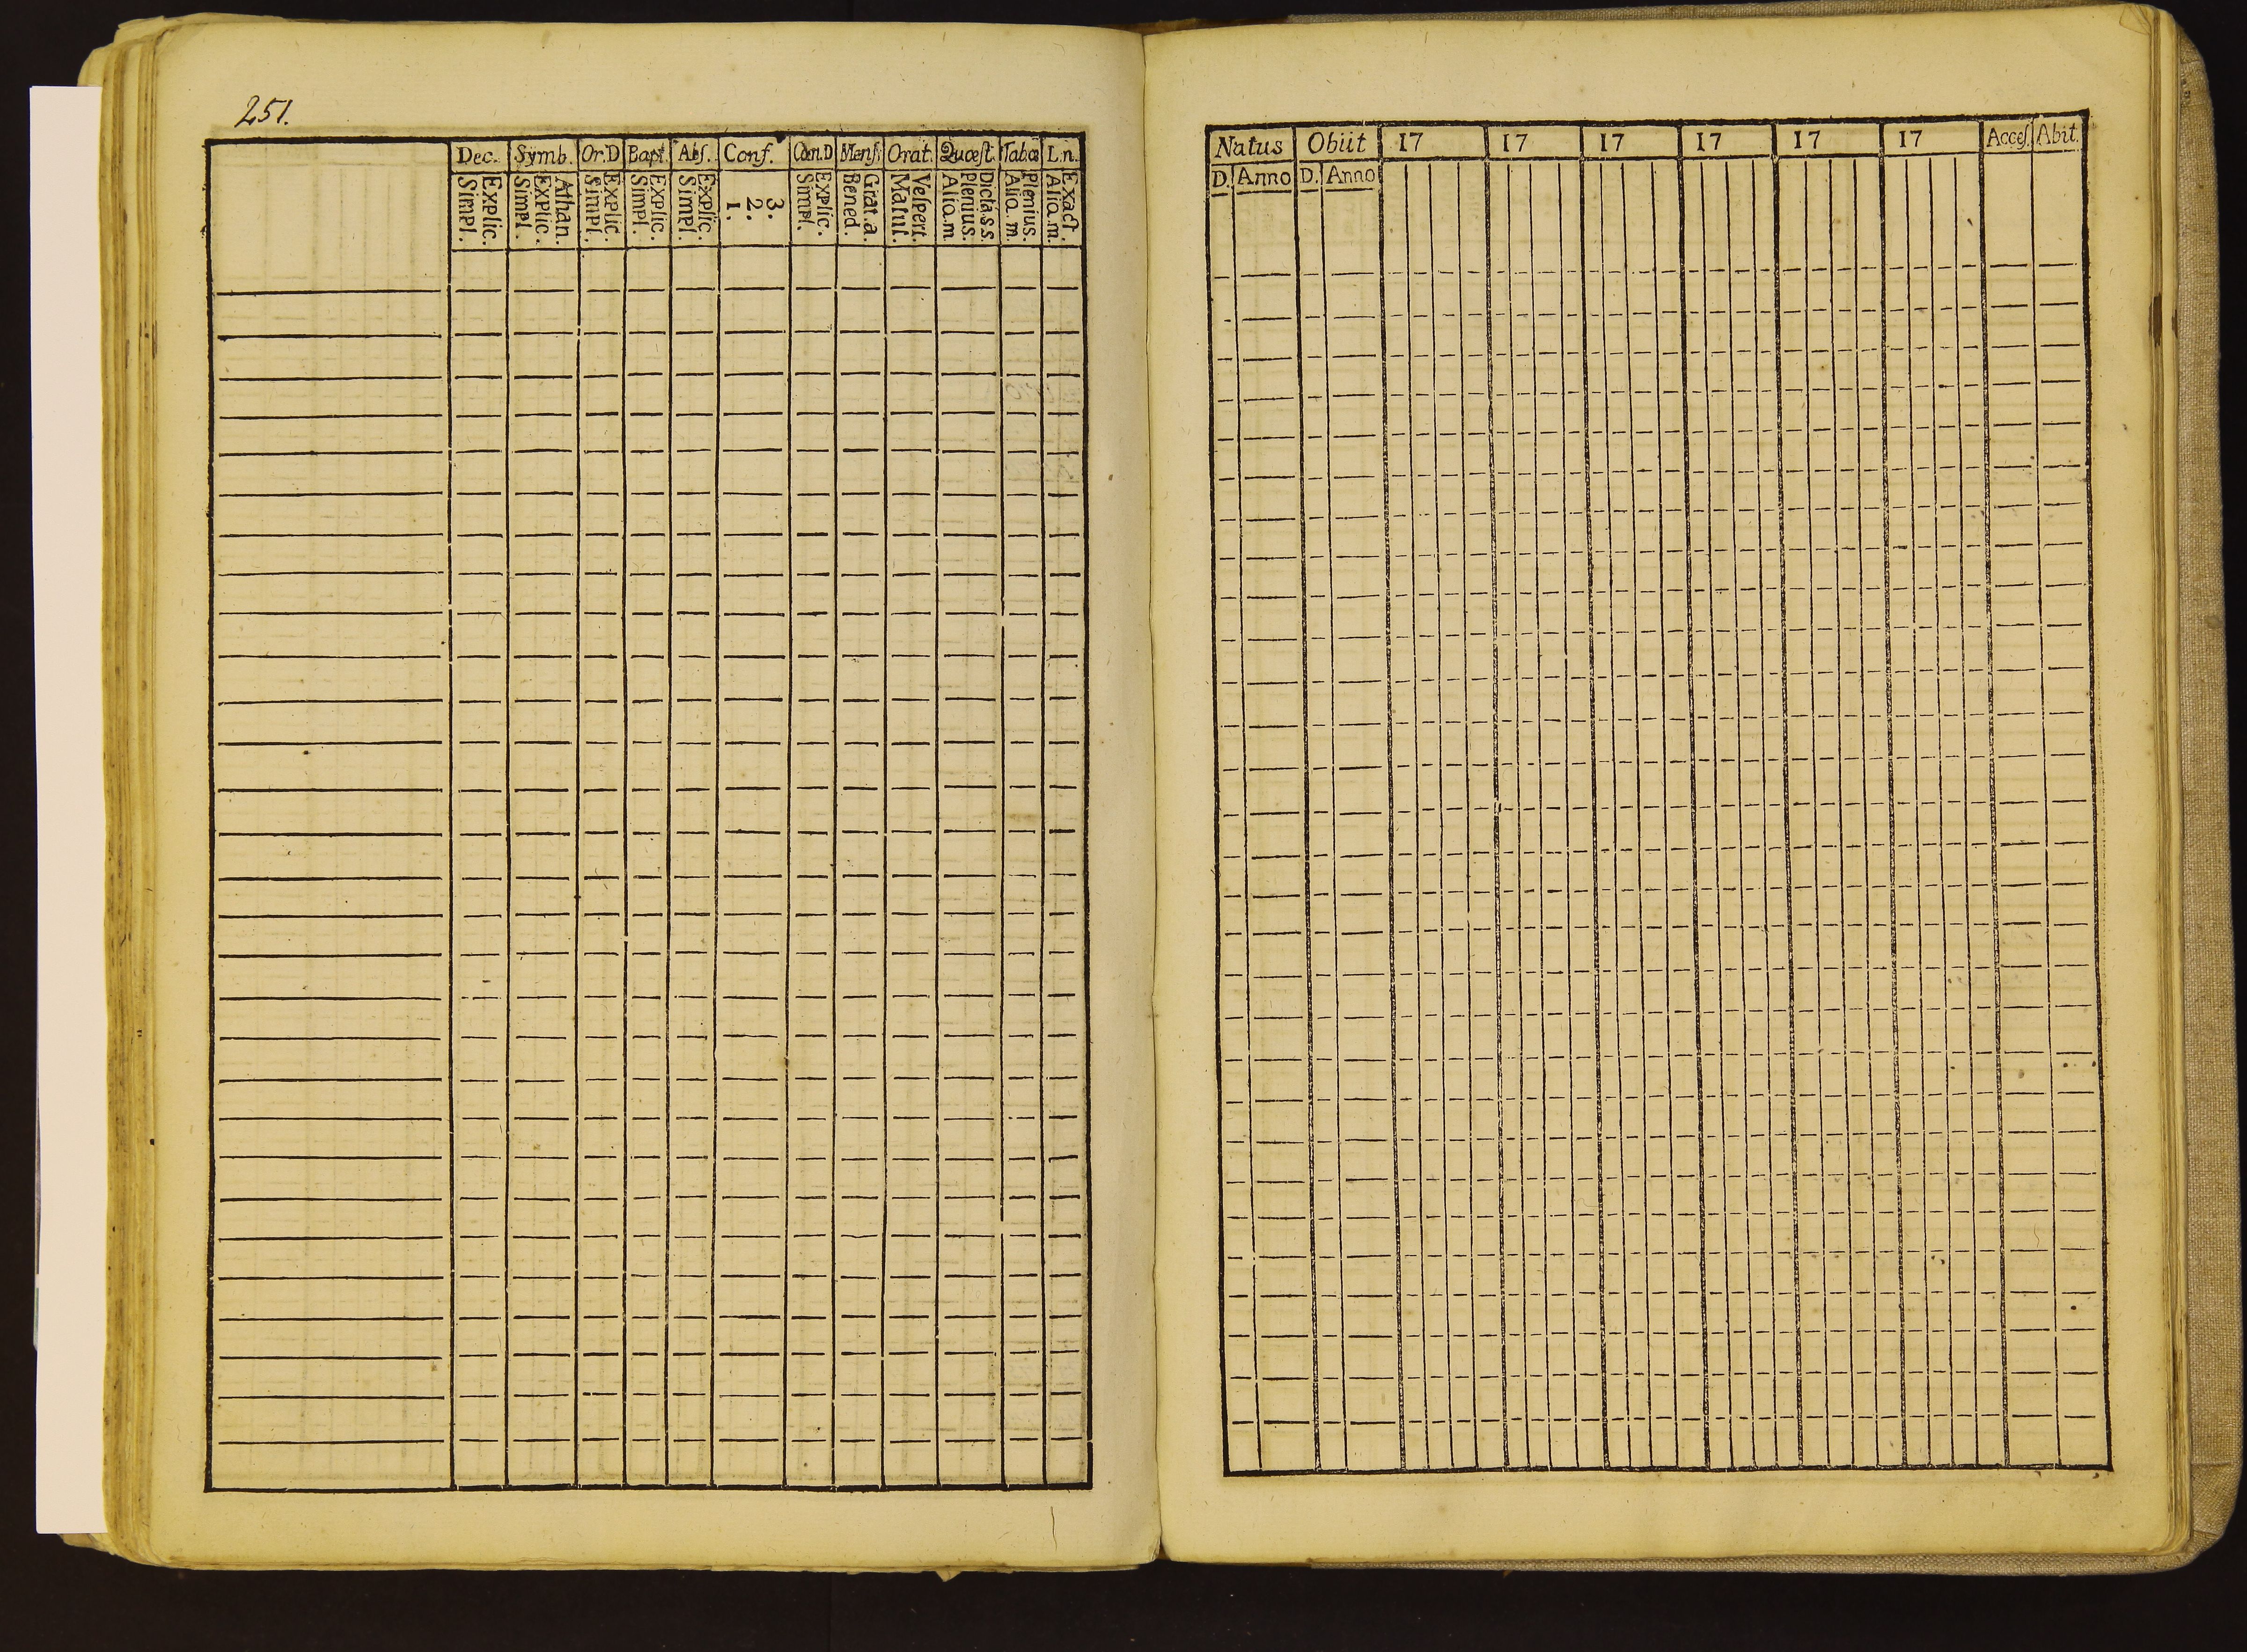 251.
Dec. Symb. Or.D Bapt. Abs. Conf. Cœn.D Mens. Orat. Quæst. Tabæ L.n.
Simpl. Explic. Simpl. Explic. Athan. Simpl. Explic. Simpl. Explic. Simpl. Explic. 1. 2. 3. Simpl. Explic. Bened. Grat.a. Matut. Vespert. Alia.m Plenius. Dicta.s.s. Alia.m. Plenius. Alia.m. Exact.
Natus Obiit 17 17 17 17 17 17 Acces. Abit.
D. Anno D. Anno